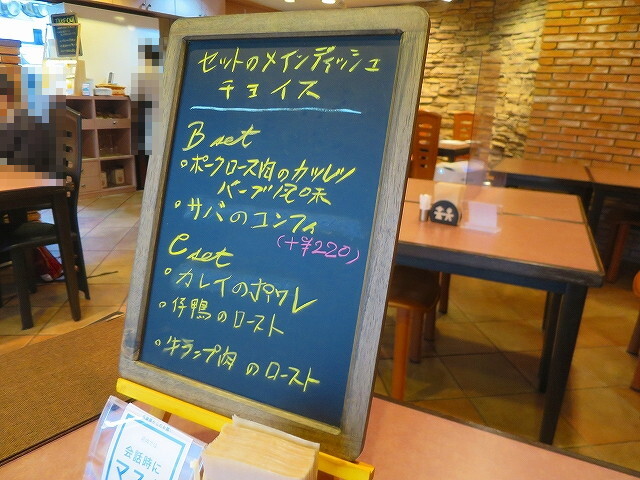 セットのメインディッシュ
チョイス
B set
・ポークロース肉のカツレツ
バーブ風味
・サバのコンフィ
(+¥220)
C set
・カレイのポワレ
・仔鴨のロースト
・牛ランプ肉のロースト
会話時に
マス